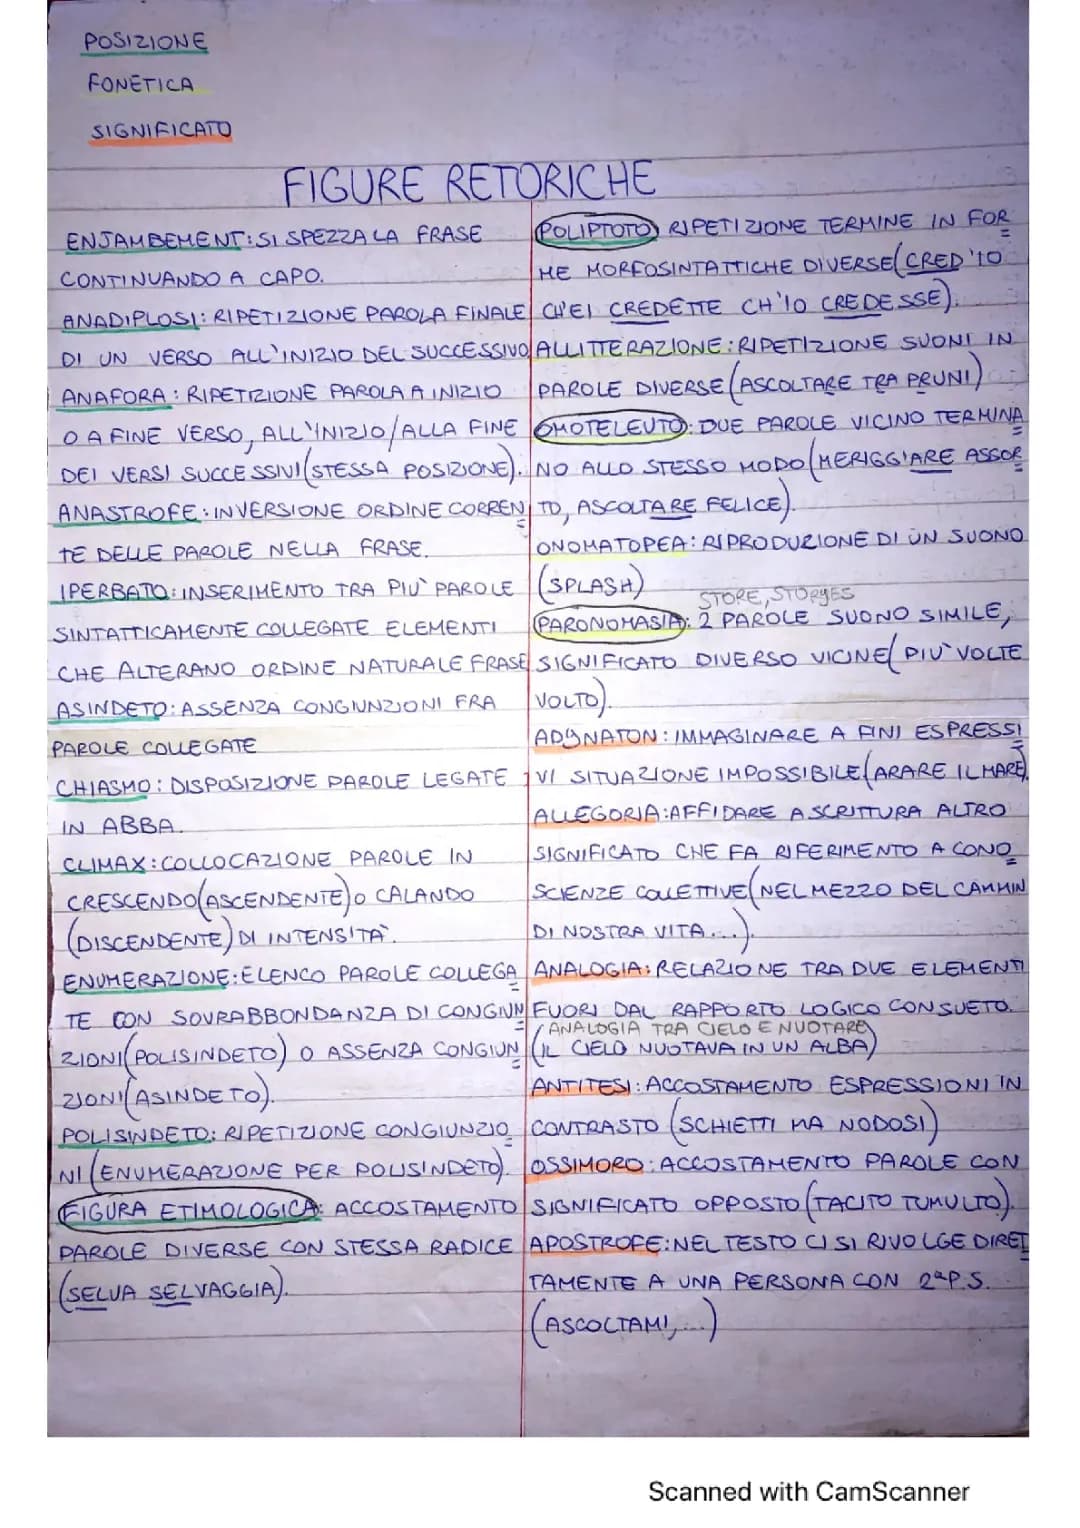 POSIZIONE
FONETICA
SIGNIFICATO
FIGURE RETORICHE
ENJAMBEMENT: SI SPEZZA LA FRASE
CONTINUANDO A CAPO.
ANADIPLOSI: RIPETIZIONE PAROLA FINALE
DI UN VERSO ALL'INIZIO DEL SUCCESSIVO
ANAFORA: RIPETIZIONE PAROLA A INIZIO
O A FINE VERSO, ALL'INIZIO/ALLA FINE
DEI VERSI SUCCESSIVI (STESSA POSIZIONE).
ANASTROFE: INVERSIONE ORDINE CORREN
TE DELLE PAROLE NELLA FRASE.
IPERBATO: INSERIMENTO TRA PIU' PAROLE
SINTATTICAMENTE COLLEGATE ELEMENTI
CHE ALTERANO ORDINE NATURALE FRASE
ASINDETO: ASSENZA CONGIUNZIONI FRA
PAROLE COLLEGATE
CHIASMO: DISPOSIZIONE PAROLE LEGATE
IN ABBA.
CLIMAX: COLLOCAZIONE PAROLE IN
CRESCENDO (ASCENDENTE) O CALANDO
(DISCENDENTE) DI INTENSITA'.
ENUMERAZIONE: ELENCO PAROLE COLLEGA
TE CON SOVRABBONDANZA DI CONGIUN
ZIONI (POLISINDETO) O ASSENZA CONGIUN
ZIONI (ASINDETO).
POLISINDETO: RIPETIZIONE CONGIUNZIO
NI (ENUMERAZIONE PER POLISINDETO).
FIGURA ETIMOLOGICA: ACCOSTAMENTO
PAROLE DIVERSE CON STESSA RADICE
(SELVA SELVAGGIA).
POLIPTOTO) RIPETIZIONE TERMINE IN FOR
ME MORFOSINTATTICHE DIVERSE (CRED'IO
CH'EI CREDETTE CH'IO CREDESSE).
ALLITTERAZIONE: RIPETIZIONE SUONI IN
PAROLE DIVERSE (ASCOLTARE TRA PRUNI)
OMOTELEUTO: DUE PAROLE VICINO TERMINA
NO ALLO STESSO MODO (MERIGGIARE ASSOR
TO, ASCOLTARE FELICE).
ONOMATOPEA: RIPRODUZIONE DI UN SUONO
(SPLASH)
STORE, STORYES
PARONOMASIA: 2 PAROLE SUONO SIMILE,
SIGNIFICATO DIVERSO VICINE (PIU' VOLTE
VOLTO).
ADYNATON: IMMAGINARE A FINI ESPRESSI
VI SITUAZIONE IMPOSSIBILE (ARARE IL MARE).
ALLEGORIA: AFFIDARE A SCRITTURA ALTRO
SIGNIFICATO CHE FA RIFERIMENTO A CONO
SCIENZE COLLETTIVE (NEL MEZZO DEL CAMMIN
DI NOSTRA VITA...).
ANALOGIA: RELAZIONE TRA DUE ELEMENTI
FUORI DAL RAPPORTO LOGICO CONSUETO.
ANALOGIA TRA CIELO E NUOTARE
(IL CIELO NUOTAVA IN UN ALBA)
ANTITESI: ACCOSTAMENTO ESPRESSIONI IN
CONTRASTO (SCHIETTI MA NODOSI)
OSSIMORO: ACCOSTAMENTO PAROLE CON
SIGNIFICATO OPPOSTO (TACITO TUMULTO).
APOSTROFE: NEL TESTO CI SI RIVOLGE DIRET
TAMENTE A UNA PERSONA CON 2ª P.S.
(ASCOLTAMI,...)
Scanned with CamScanner